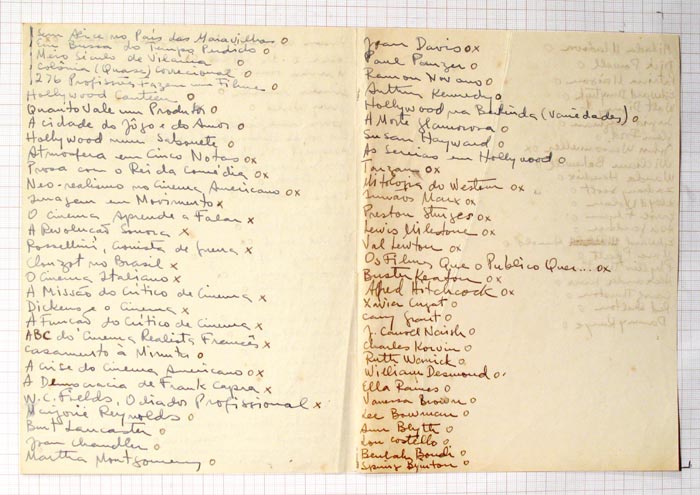 Sem Alice no País das Maravilhas o
Em Busca do Tempo Perdido o
Meio Século de Vilania o
Colônia (Quase) Correcional o
276 Profissões Fazem um Filme o
Hollywood Canteen o
Quanto Vale um Produtor o
A cidade do Jôgo e do Amor o
Hollywood num Sabonete o
Atmosfera em Cinco Notas ox
Prosa com o Rei da Comédia ox
Neo-realismo no Cinema Americano ox
Imagem em Movimento x
O Cinema Aprende a Falar x
A Revolução Sonora x
Rossellini, cronista de guerra x
Clouzot no Brasil x
O Cinema Italiano x
A Missão do Crítico de Cinema x
Dickens e o Cinema x
A Função do Crítico de Cinema x
ABC do Cinema Realista Francês x
Casamento à Minuta o
A crise do Cinema Americano ox
A Democracia de Frank Capra x
W.C. Fields, O diador Profissional x
Marjorie Reynolds o
Burt Lancaster o
Joan Chandler o
Martha Montgomery o
Joan Davis ox
Paul Panzer o
Ramon Novarro o
Arthur Kennedy o
Hollywood na Berlinda (Variedades) o
A Morte Glamorosa o
Susan Hayward o
As Sereias em Hollywood o
Tarzan ox
Mitologia do Western ox
Irmãos Marx ox
Preston Sturges ox
Lewis Milestone ox
Val Lewton ox
Os Filmes Que o Publico Quer... ox
Buster Keaton ox
Alfred Hitchcock ox
Xavier Cugat o
Cary Grant o
J. Carrol Naish o
Charles Korvin o
Ruth Warrick o
William Desmond o
Ella Raines o
Vanessa Brown o
Lee Bowman o
Ann Blyth o
Lou Costello o
Beulah Bondi o
Spring Byington o